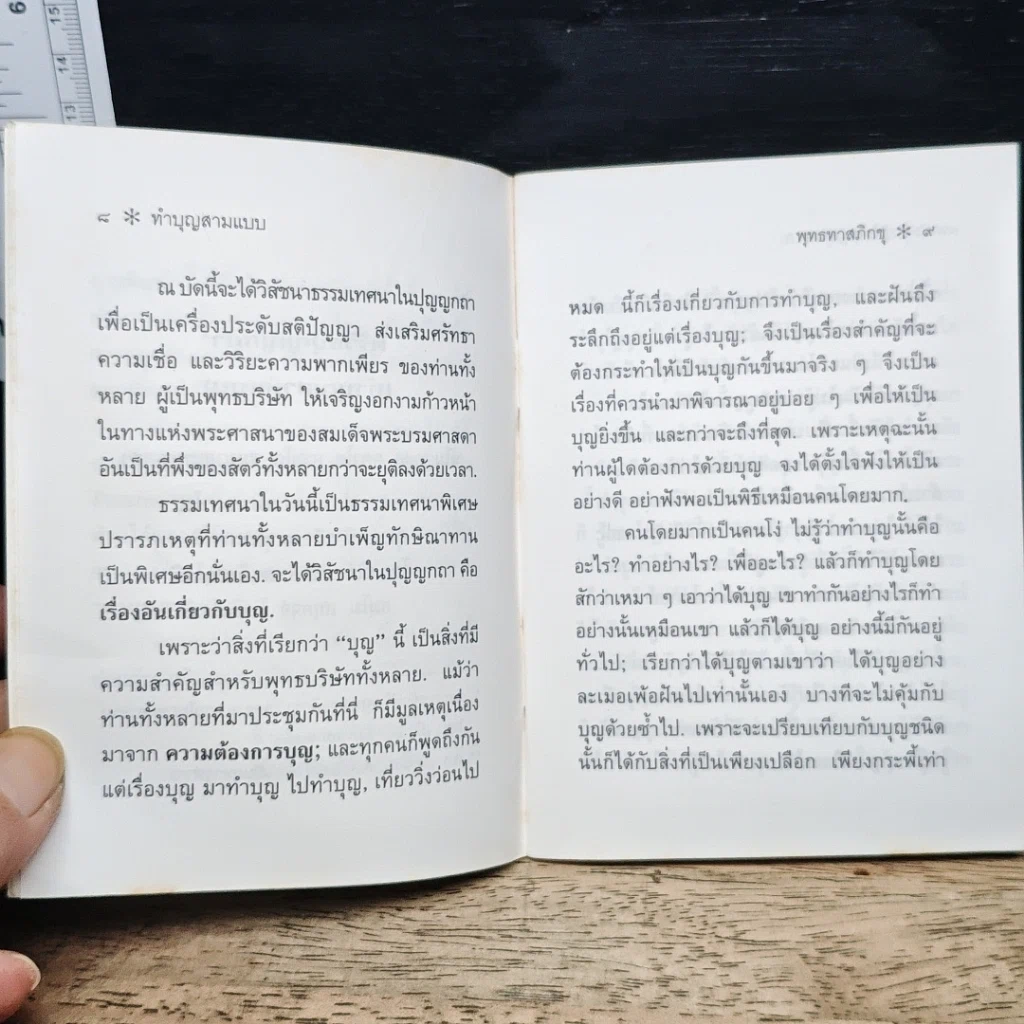 6
15
14
13
๘ ✻ ทำบุญสามแบบ
ณ บัดนี้จะได้วิสัชนาธรรมเทศนาในปุญญกถา
เพื่อเป็นเครื่องประดับสติปัญญา ส่งเสริมศรัทธา
ความเชื่อ และวิริยะความพากเพียร ของท่านทั้ง
หลาย ผู้เป็นพุทธบริษัท ให้เจริญงอกงามก้าวหน้า
ในทางแห่งพระศาสนาของสมเด็จพระบรมศาสดา
อันเป็นที่พึ่งของสัตว์ทั้งหลายกว่าจะยุติลงด้วยเวลา.
ธรรมเทศนาในวันนี้เป็นธรรมเทศนาพิเศษ
ปรารภเหตุที่ท่านทั้งหลายบำเพ็ญทักษิณาทาน
เป็นพิเศษอีกนั่นเอง. จะได้วิสัชนาในปุญญกถา คือ
เรื่องอันเกี่ยวกับบุญ.
เพราะว่าสิ่งที่เรียกว่า “บุญ” นี้ เป็นสิ่งที่มี
ความสำคัญสำหรับพุทธบริษัททั้งหลาย. แม้ว่า
ท่านทั้งหลายที่มาประชุมกันที่นี่ ก็มีมูลเหตุเนื่อง
มาจาก ความต้องการบุญ; และทุกคนก็พูดถึงกัน
แต่เรื่องบุญ มาทำบุญ ไปทำบุญ, เที่ยววิ่งว่อนไป
พุทธทาสภิกขุ ✻ ๙
หมด นี้ก็เรื่องเกี่ยวกับการทำบุญ, และฝันถึง
ระลึกถึงอยู่แต่เรื่องบุญ; จึงเป็นเรื่องสำคัญที่จะ
ต้องกระทำให้เป็นบุญกันขึ้นมาจริง ๆ จึงเป็น
เรื่องที่ควรนำมาพิจารณาอยู่บ่อย ๆ เพื่อให้เป็น
บุญยิ่งขึ้น และกว่าจะถึงที่สุด. เพราะเหตุฉะนั้น
ท่านผู้ใดต้องการด้วยบุญ จงได้ตั้งใจฟังให้เป็น
อย่างดี อย่าฟังพอเป็นพิธีเหมือนคนโดยมาก.
คนโดยมากเป็นคนโง่ ไม่รู้ว่าทำบุญนั้นคือ
อะไร? ทำอย่างไร? เพื่ออะไร? แล้วก็ทำบุญโดย
สักว่าเหมา ๆ เอาว่าได้บุญ เขาทำกันอย่างไรก็ทำ
อย่างนั้นเหมือนเขา แล้วก็ได้บุญ อย่างนี้มีกันอยู่
ทั่วไป; เรียกว่าได้บุญตามเขาว่า ได้บุญอย่าง
ละเมอเพ้อฝันไปเท่านั้นเอง บางทีจะไม่คุ้มกับ
บุญด้วยซ้ำไป. เพราะจะเปรียบเทียบกับบุญชนิด
นั้นก็ได้กับสิ่งที่เป็นเพียงเปลือก เพียงกระพี้เท่า